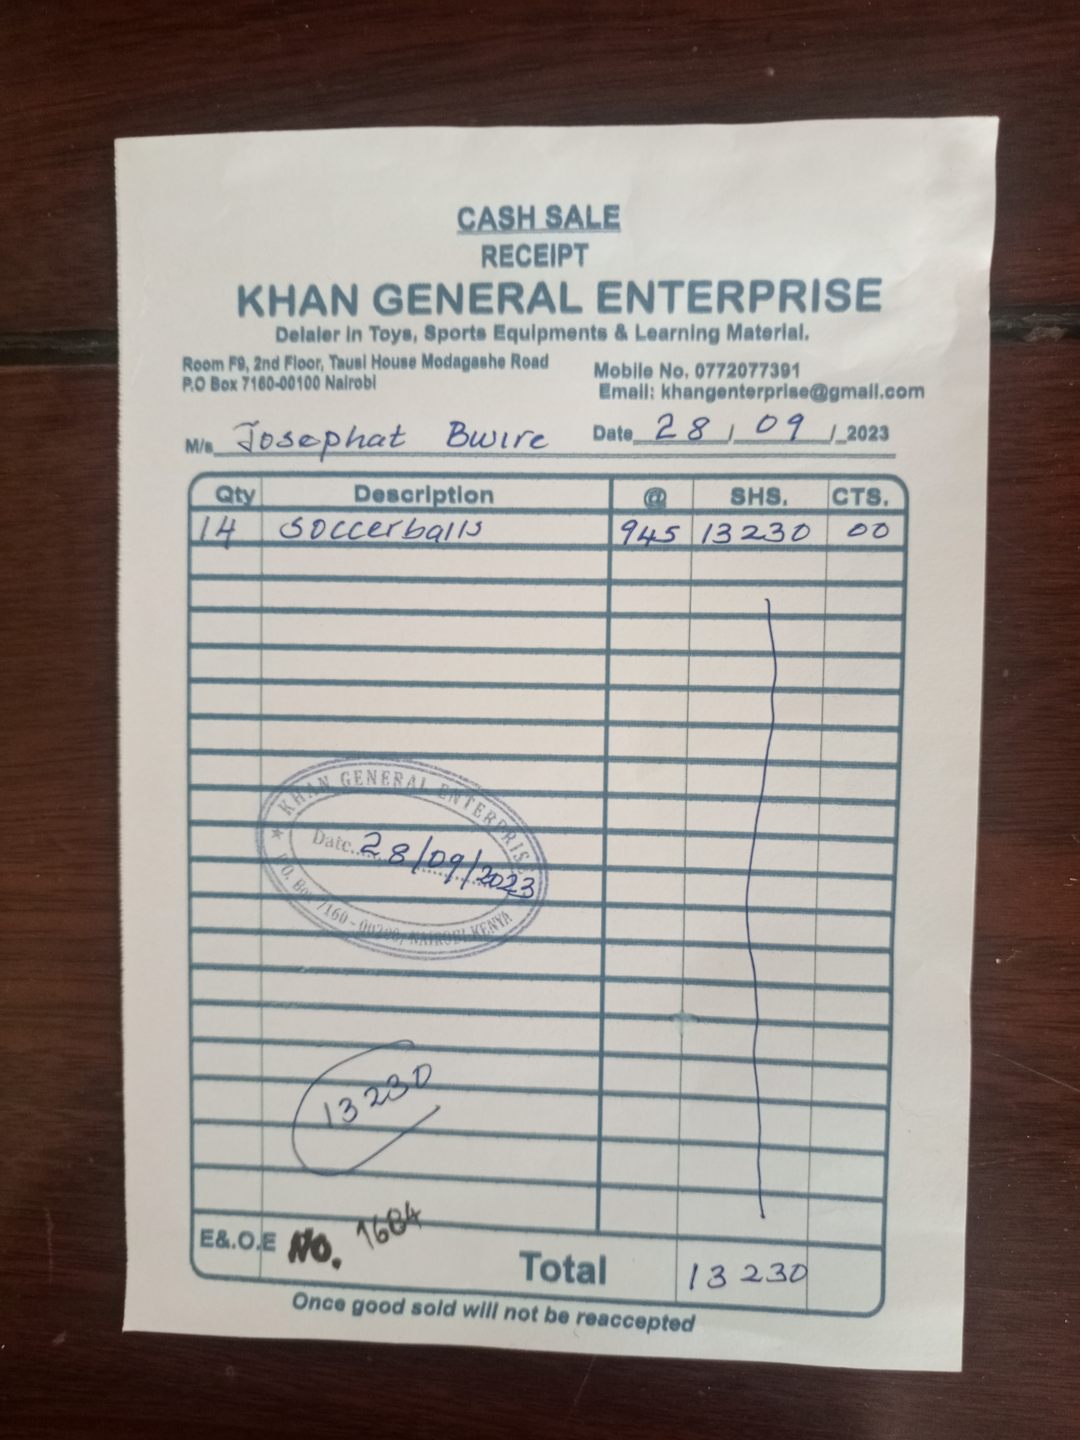 CASH SALE
RECEIPT
KHAN GENERAL ENTERPRISE
Delaler in Toys, Sports Equipments & Learning Material.
Room F9, 2nd Floor, Tausi House Modagashe Road
P.O Box 7160-00100 Nairobi
Mobile No. 0772077391
Email: khangenterprise@gmail.com
M/s Josephat Bwire Date 28 / 09 / 2023
Qty Description @ SHS. CTS.
14 Soccerballs 945 13230 00
KHAN GENERAL ENTERPRISE
Date 28/09/2023
P.O. Box 7160 - 00200, NAIROBI-KENYA
13230
E&.O.E No. 1684
Total 13230
Once good sold will not be reaccepted